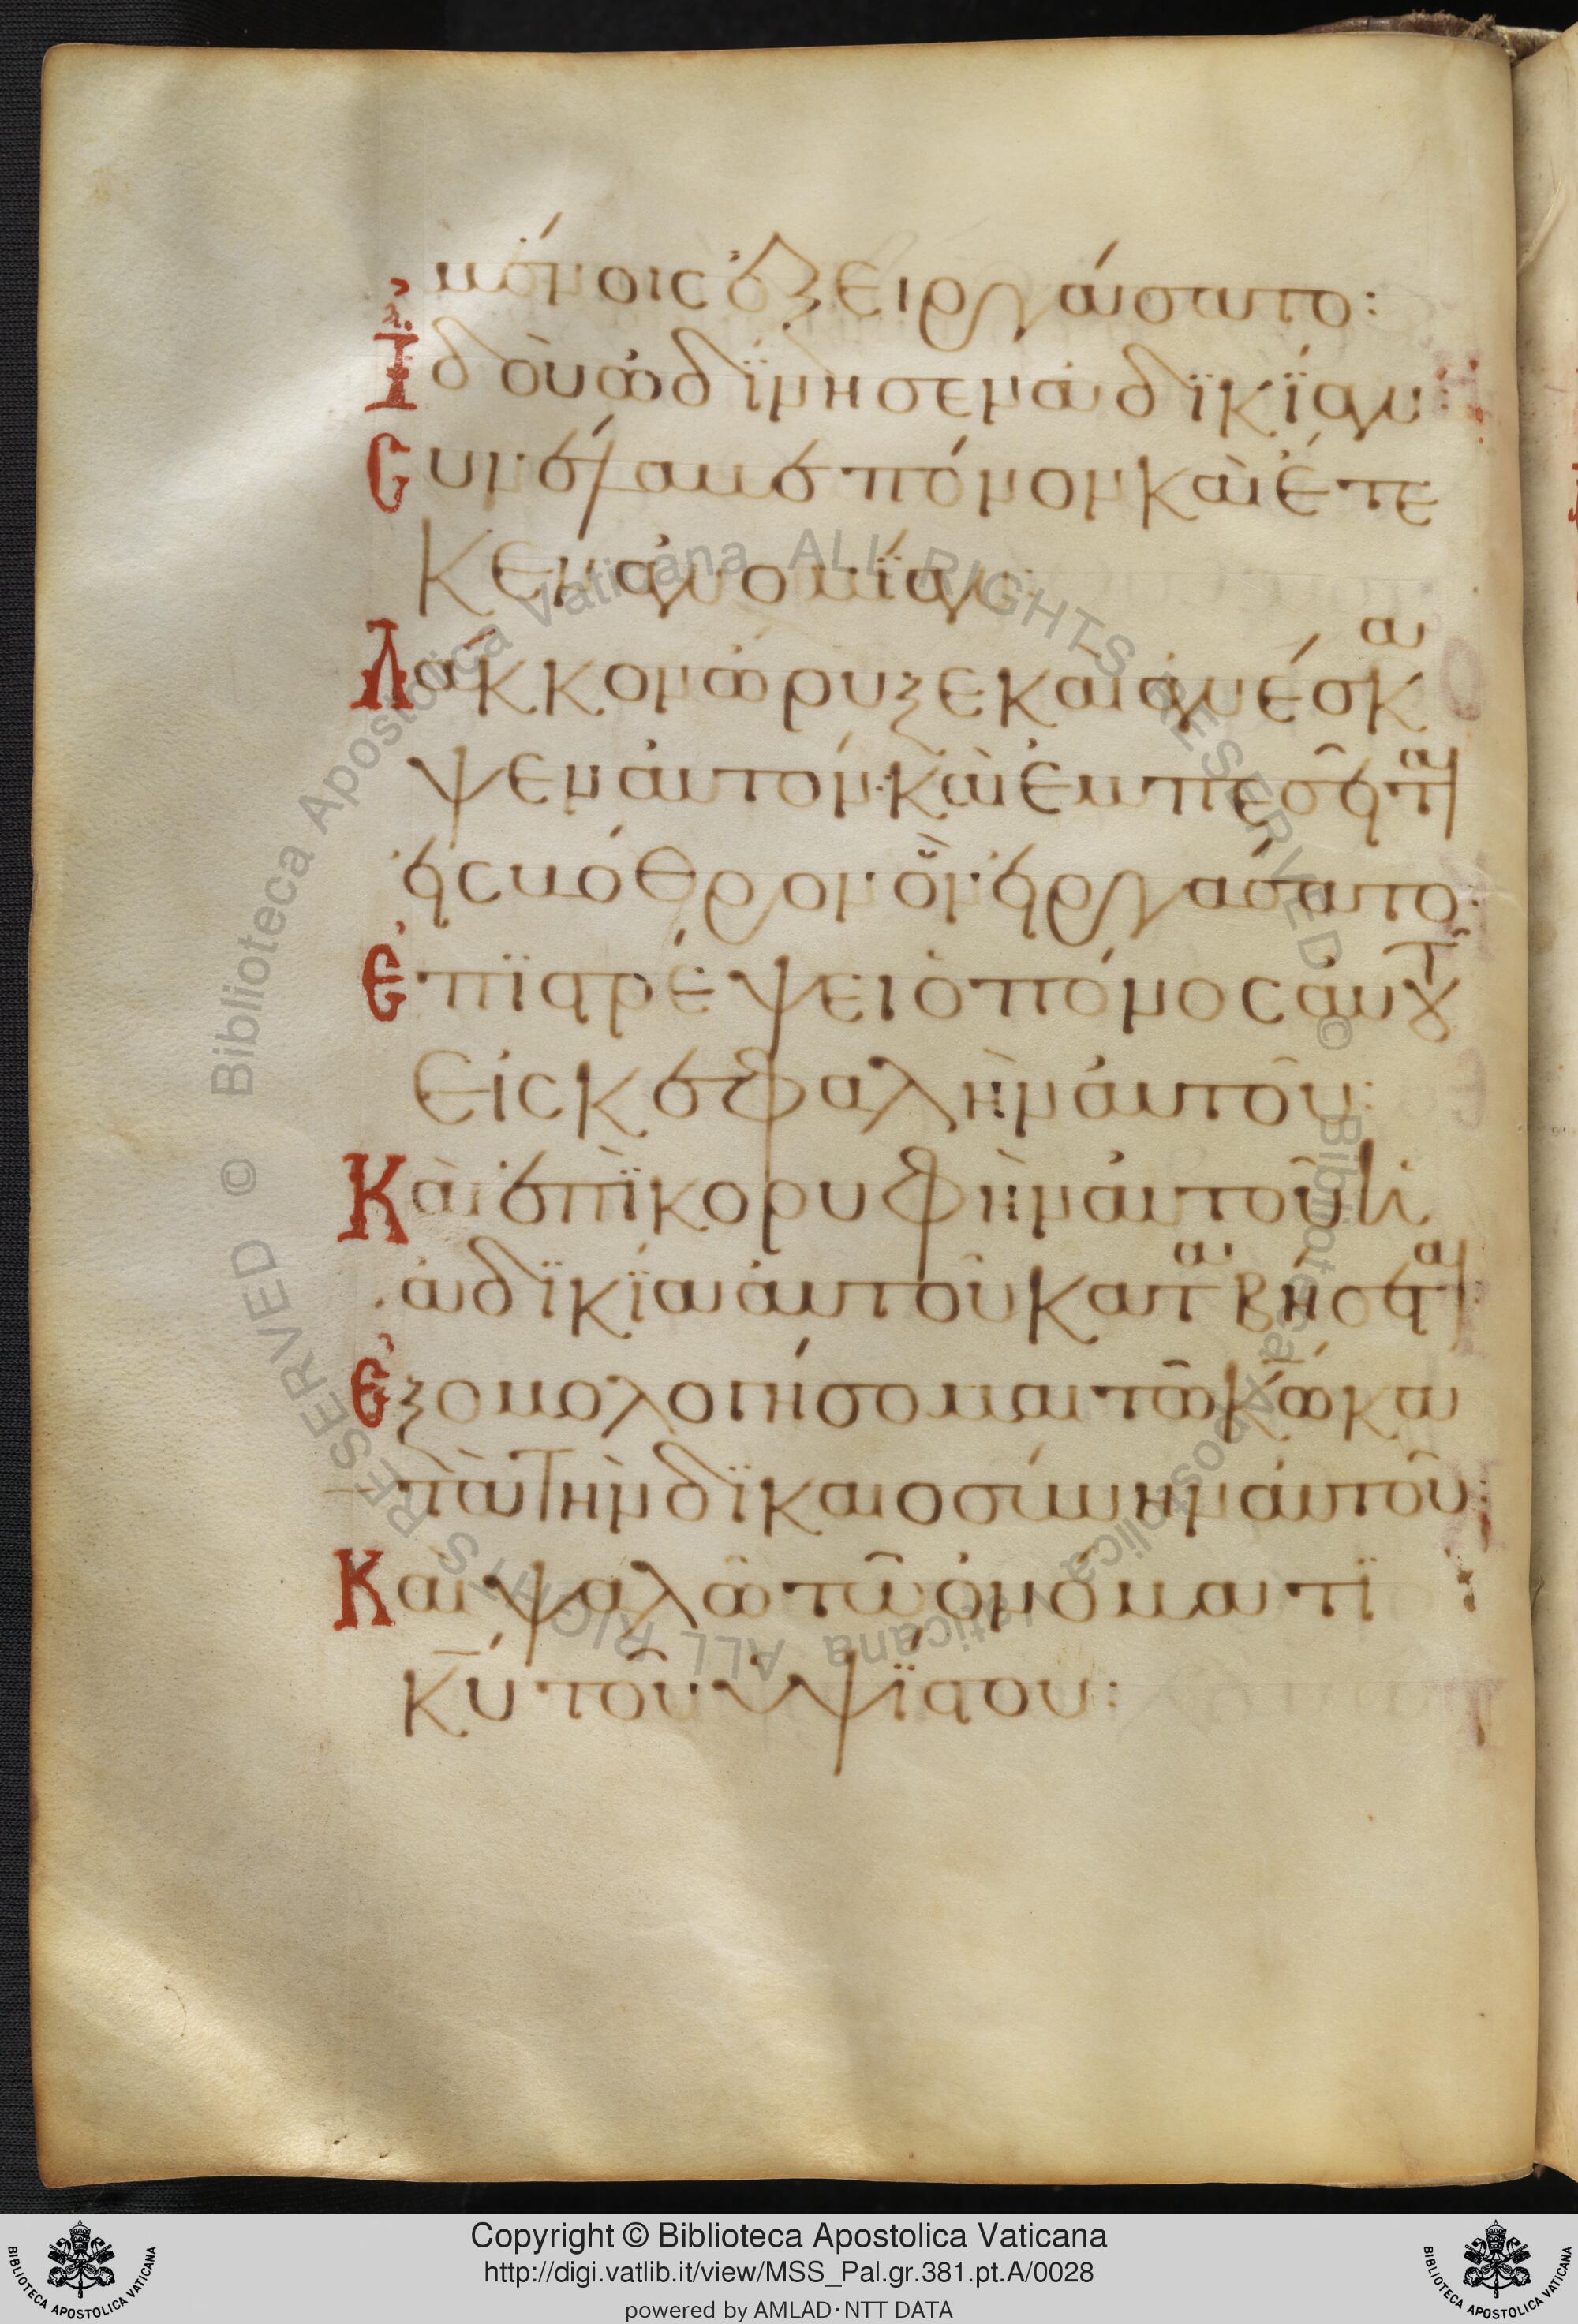 μένοις ἐξειργάσατο:
Ἰδοὺ ὠδίνησεν ἀδικίαν:
Συνέλαβε πόνον καὶ ἔτε
κεν ἀνομίαν:
Λάκκον ὤρυξε καὶ ἀνέσκα
ψεν αὐτόν· καὶ ἐμπεσεῖται
εἰς βόθρον ὃν εἰργάσατο:
Ἐπιστρέψει ὁ πόνος αὐτοῦ
εἰς κεφαλὴν αὐτοῦ:
Καὶ ἐπὶ κορυφὴν αὐτοῦ ἡ
ἀδικία αὐτοῦ καταβήσεται
Ἐξομολογήσομαι τῶ κω κα
τὰ τὴν δικαιοσύνην αὐτοῦ:
Καὶ ψαλῶ τῶ ὀνόματι
κυ τοῦ ὑψίστου:
Copyright © Biblioteca Apostolica Vaticana
http://digi.vatlib.it/view/MSS_Pal.gr.381.pt.A/0028
powered by AMLAD·NTT DATA
BIBLIOTECA APOSTOLICA VATICANA
BIBLIOTECA APOSTOLICA VATICANA
© Biblioteca Apostolica Vaticana ALL RIGHTS RESERVED
© Biblioteca Apostolica Vaticana ALL RIGHTS RESERVED